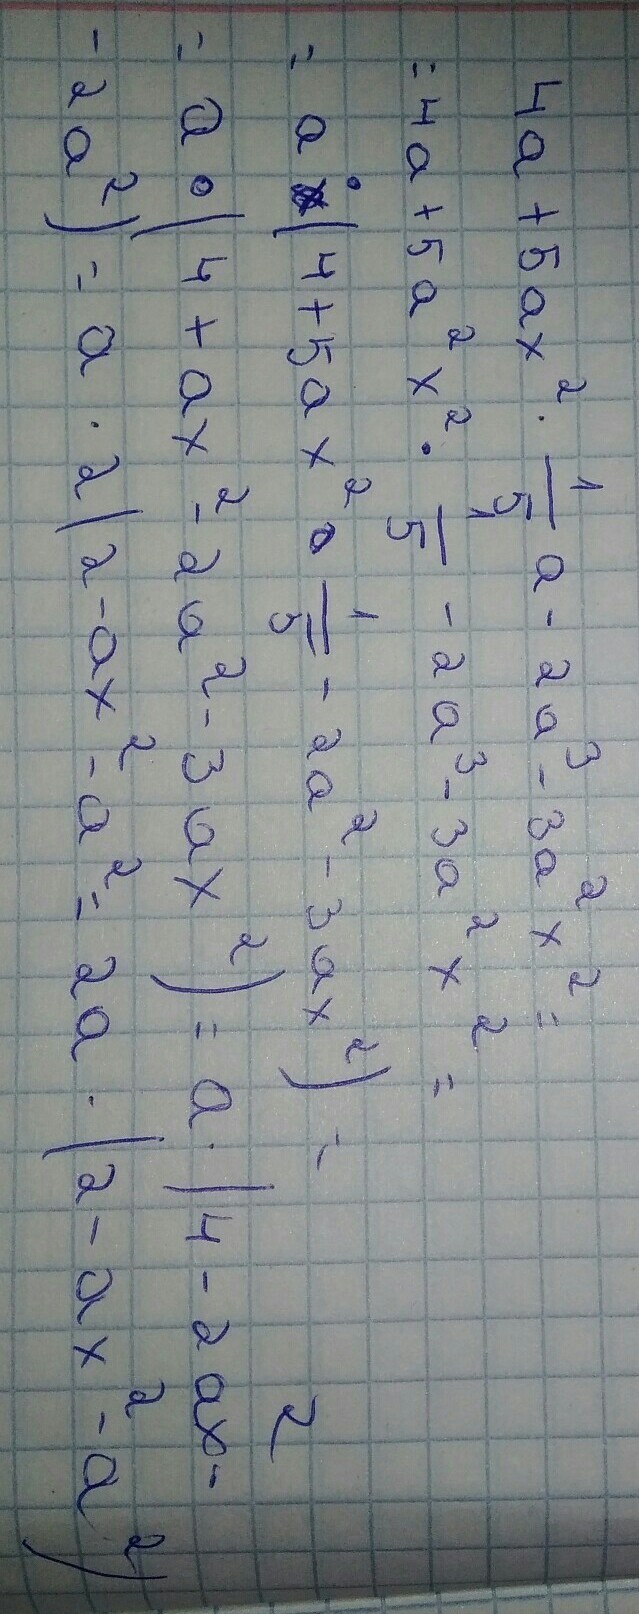 4a + 5ax² · 1/5 a - 2a³ - 3a²x² =
= 4a + 5a²x² · 1/5 - 2a³ - 3a²x² =
= a · (4 + 5ax² · 1/5 - 2a² - 3ax²) =
= a · (4 + ax² - 2a² - 3ax²) = a · (4 - 2ax² -
- 2a²) = a · 2(2 - ax² - a² = 2a · (2 - ax² - a²)